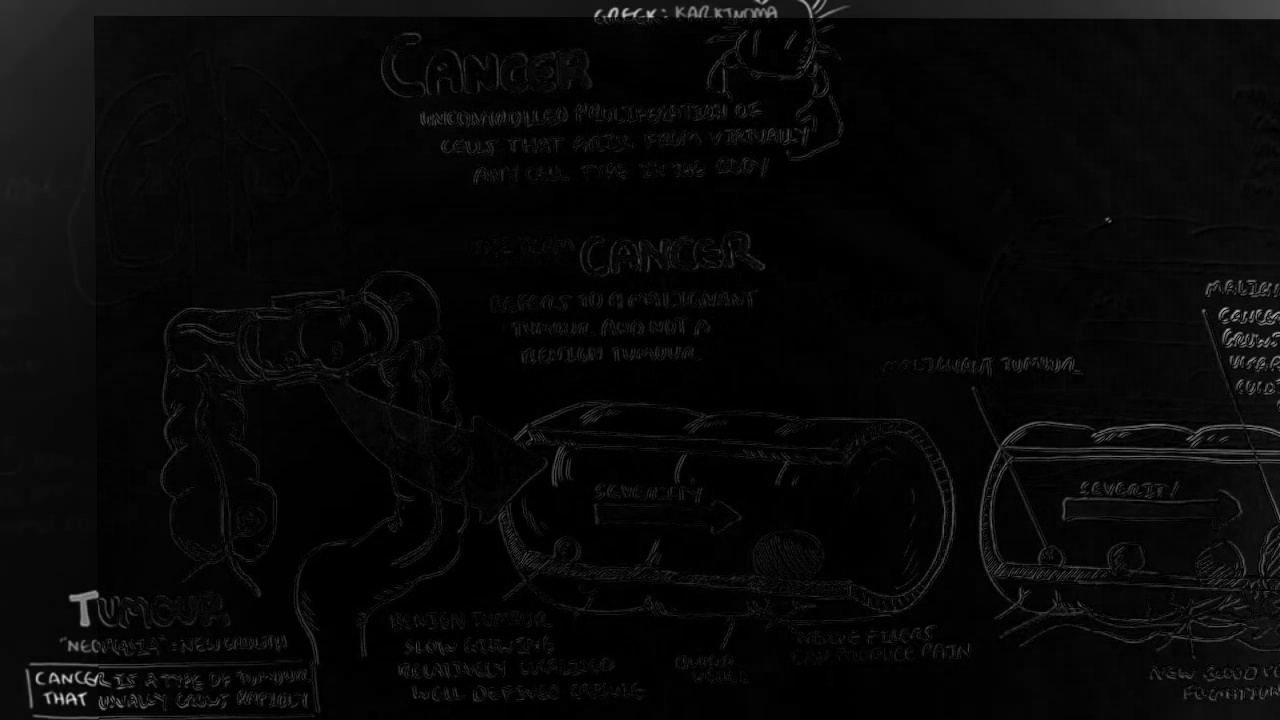 GREEK: KARKINOMA
CANCER
UNCONTROLLED PROLIFERATION OF
CELLS THAT ARISE FROM VIRTUALLY
ANY CELL TYPE IN THE BODY
THE TERM CANCER
REFERS TO A MALIGNANT
TUMOUR AND NOT A
BENIGN TUMOUR
MALIGNANT TUMOUR
MALIGN
CANCER
SEVERITY
SEVERITY
TUMOUR
"NEOPLASIA" = NEW GROWTH
CANCER IS A TYPE OF TUMOUR
THAT USUALLY GROWS RAPIDLY
BENIGN TUMOUR
SLOW GROWING
RELATIVELY LOCALIZED
WELL DEFINED CAPSULE
BLOOD
VESSEL
NERVE FIBERS
CAN PRODUCE PAIN
NEW BLOOD